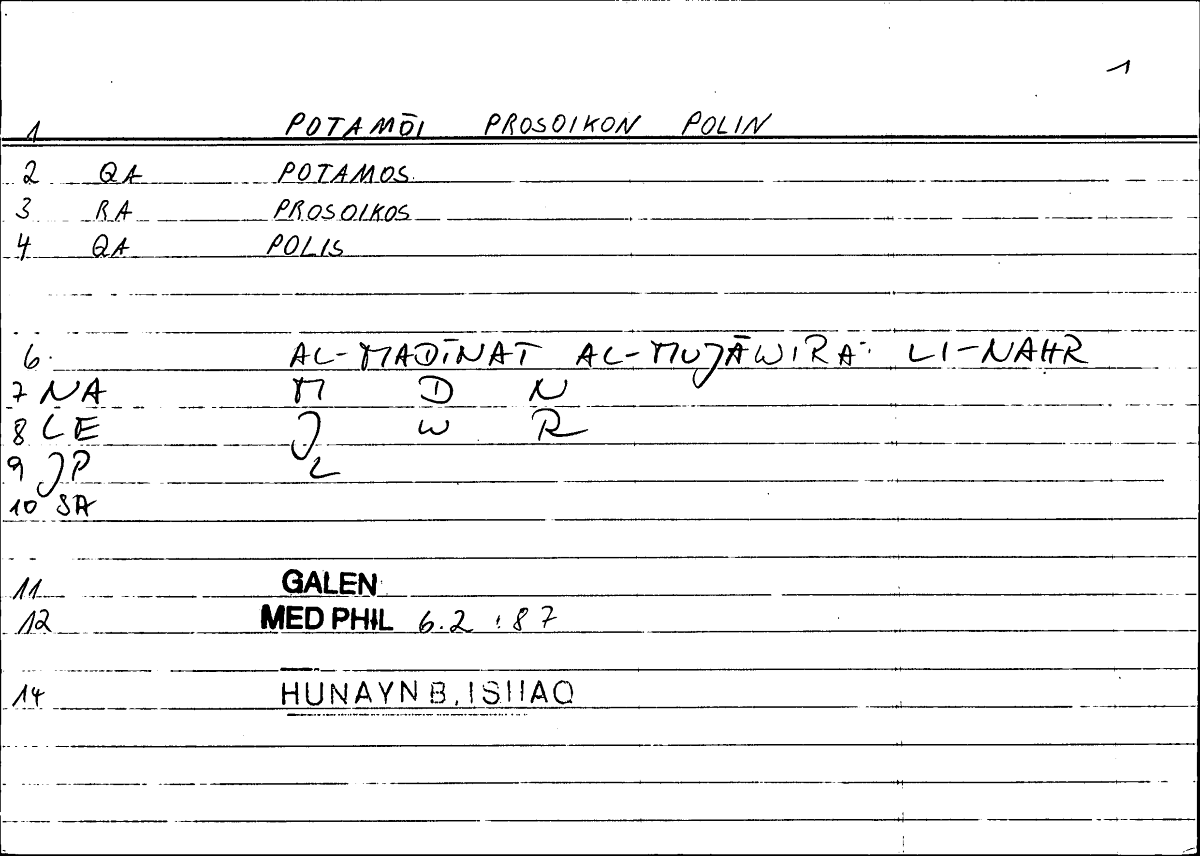 1
1 POTAMŌI PROSOIKON POLIN
2 QA POTAMOS
3 RA PROSOIKOS
4 QA POLIS
6 AL-MADĪNAT AL-MUJĀWIRA LI-NAHR
7 NA M D N
8 LE J W R
9 JP L
10 SA
11 GALEN
12 MED PHIL 6.2 : 87
14 HUNAYN B. ISHAQ